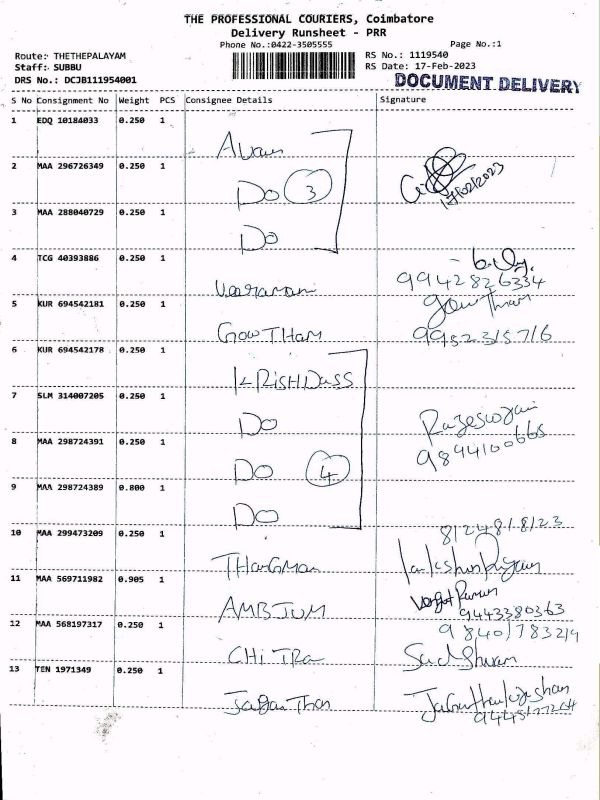 THE PROFESSIONAL COURIERS, Coimbatore
Delivery Runsheet - PRR
Phone No.:0422-3505555
Page No.:1
Route: THETHEPALAYAM
Staff: SUBBU
DRS No.: DCJB111954001
RS No.: 1119540
RS Date: 17-Feb-2023
DOCUMENT DELIVERY
S No Consignment No Weight PCS Consignee Details Signature
1 EDQ 10184033 0.250 1
2 MAA 296726349 0.250 1
Do 3 17/02/2023
3 MAA 288040729 0.250 1
Do
4 TCG 40393886 0.250 1
Veeramani 9942826334
5 KUR 694542181 0.250 1
GowTHAM 9952315716
6 KUR 694542178 0.250 1
KRISHDASS
7 SLM 314007205 0.250 1
Do
8 MAA 298724391 0.250 1
Do 4 9894100665
9 MAA 298724389 0.800 1
Do
10 MAA 299473209 0.250 1
11 MAA 569711982 0.905 1
9443380363
12 MAA 568197317 0.250 1
CHITRA
13 TEN 1971349 0.250 1